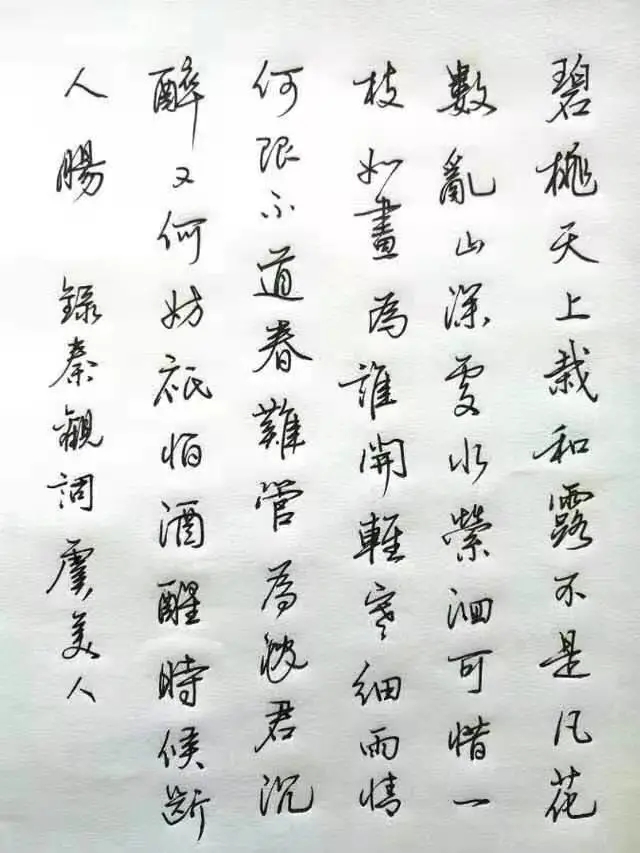 碧桃天上栽和露不是凡花
數亂山深處水縈洄可惜一
枝如畫為誰開輕寒細雨情
何限不道春難管為汝君沉
醉又何妨衹怕酒醒時候斷
人腸 錄秦觀詞虞美人